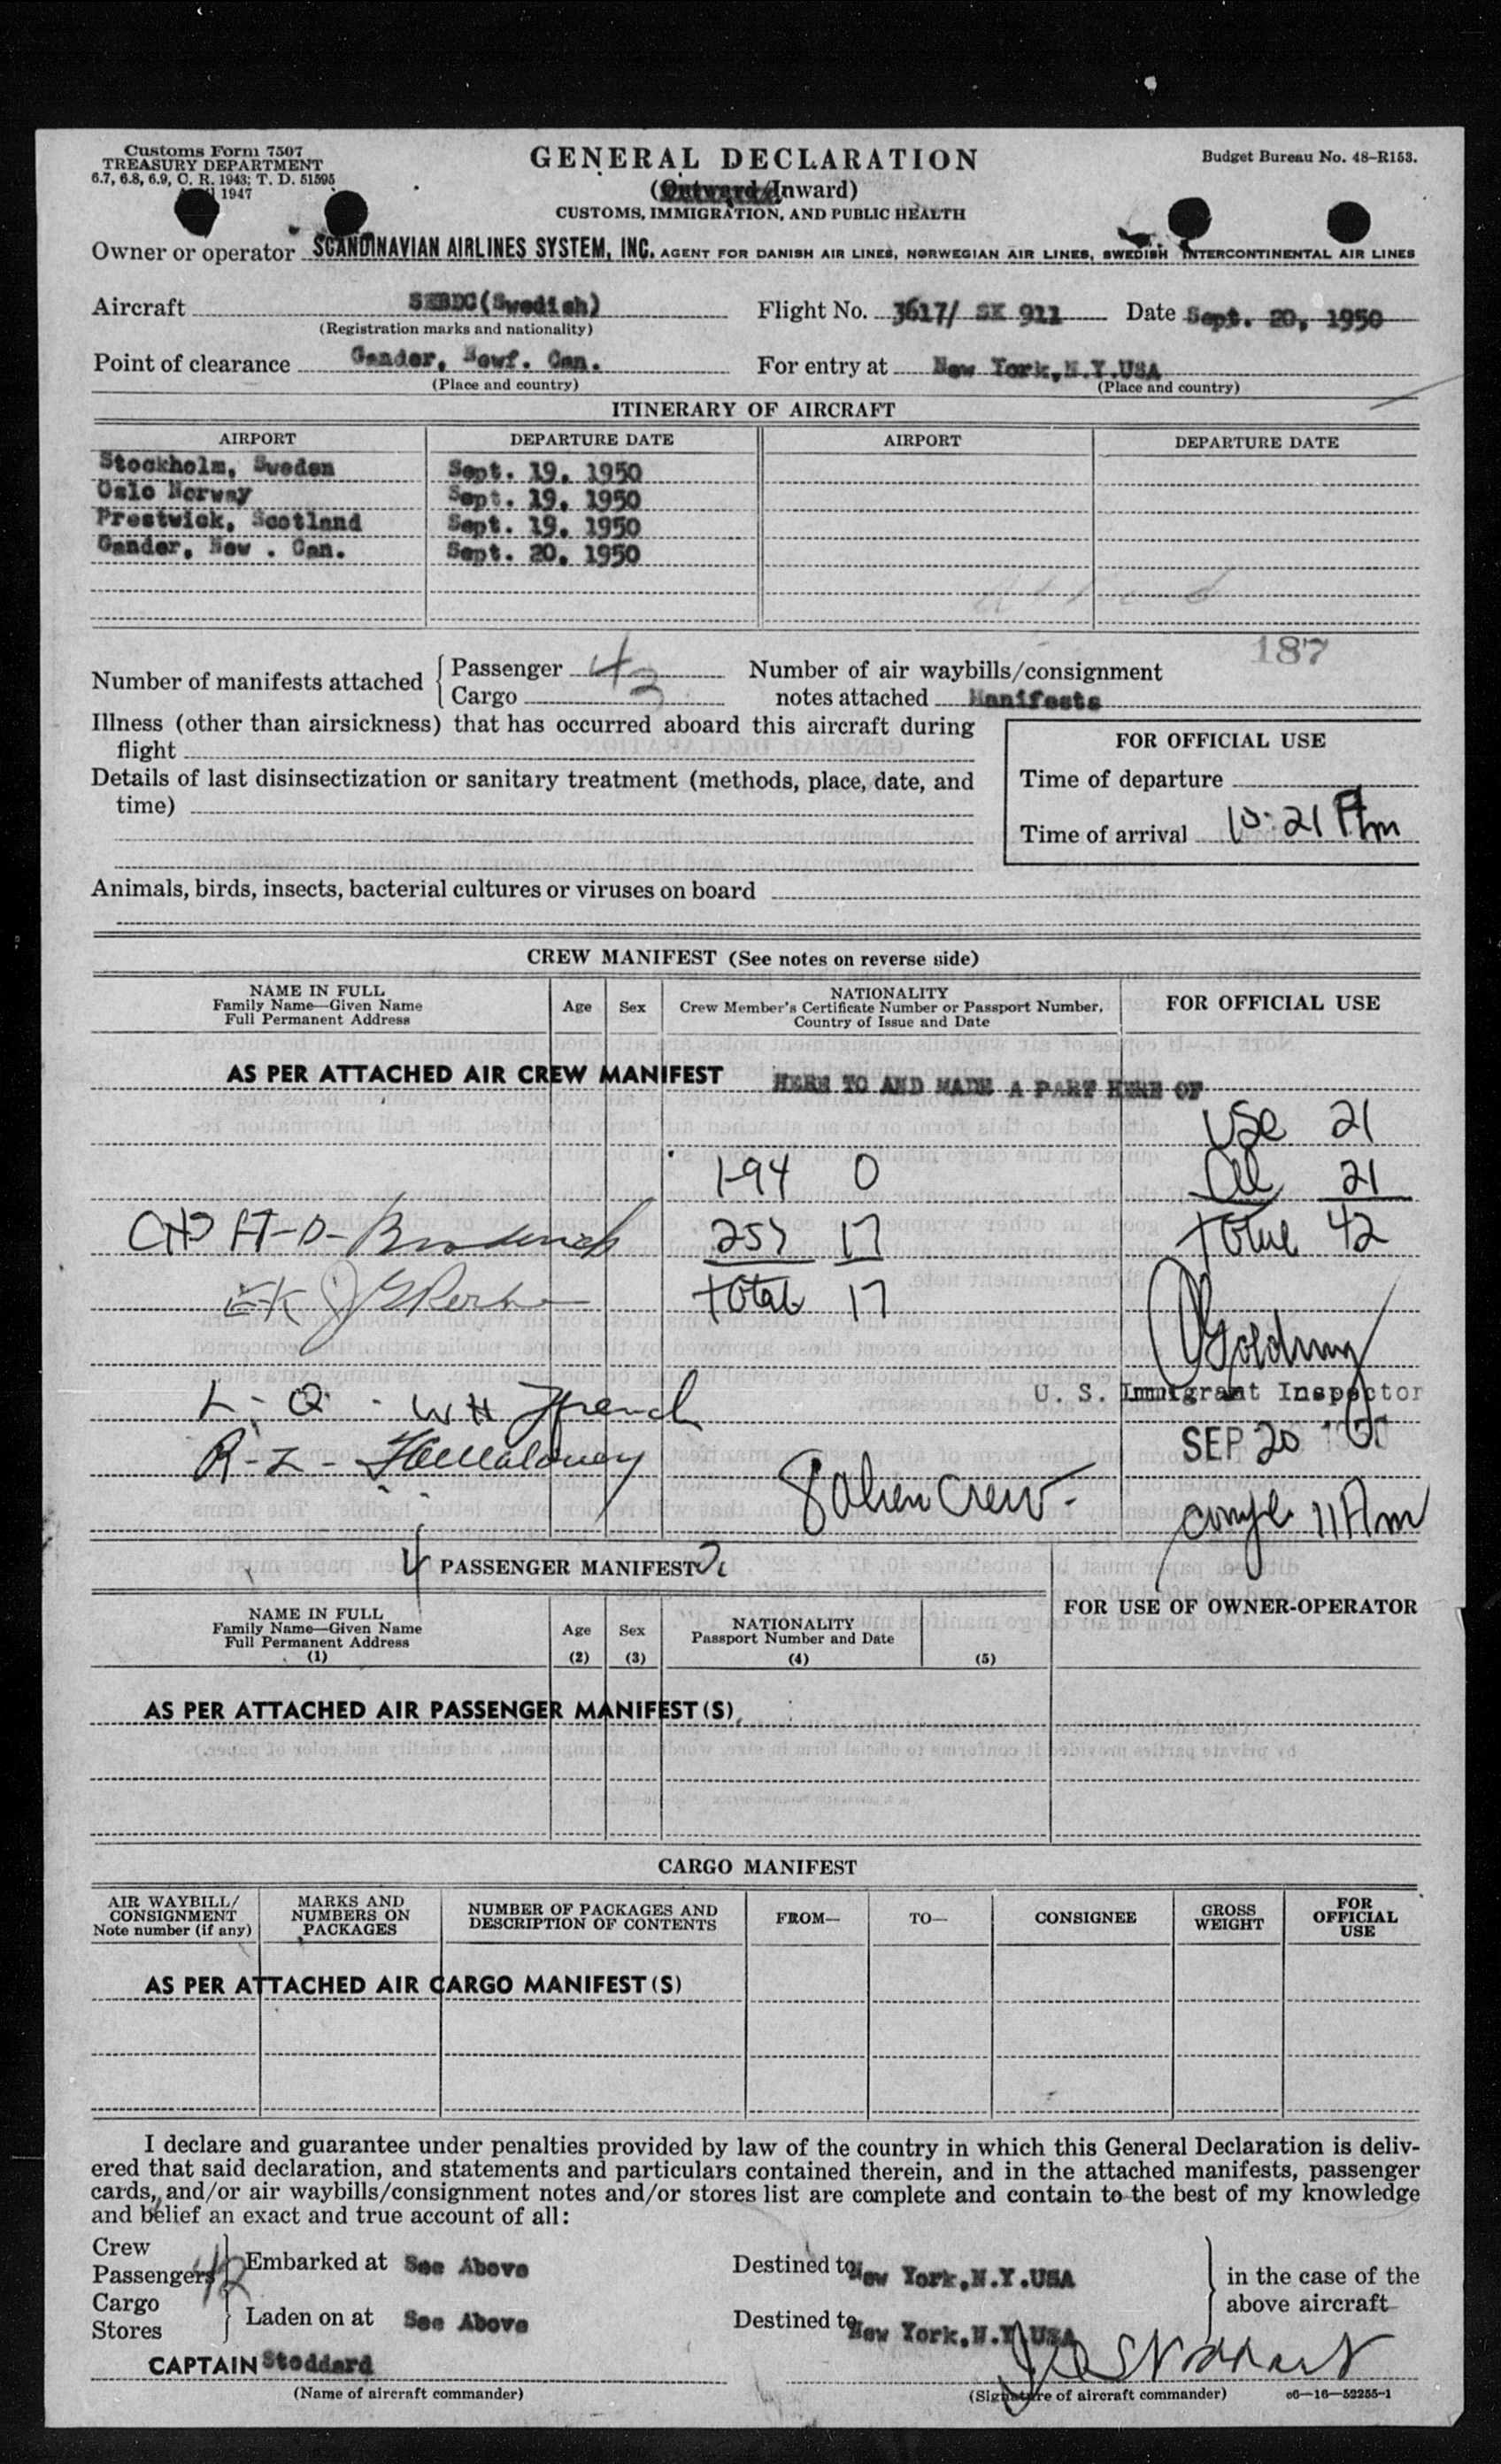 Customs Form 7507
TREASURY DEPARTMENT
6.7, 6.8, 6.9, C. R. 1943; T. D. 51595
1947
GENERAL DECLARATION
(Outward/Inward)
CUSTOMS, IMMIGRATION, AND PUBLIC HEALTH
Budget Bureau No. 48-R153.
Owner or operator SCANDINAVIAN AIRLINES SYSTEM, INC. AGENT FOR DANISH AIR LINES, NORWEGIAN AIR LINES, SWEDISH INTERCONTINENTAL AIR LINES
Aircraft SEBDC(Swedish) Flight No. 3617/ SK 911 Date Sept. 20, 1950
(Registration marks and nationality)
Point of clearance Gander, Newf. Can. For entry at New York,N.Y.USA
(Place and country) (Place and country)
ITINERARY OF AIRCRAFT
AIRPORT DEPARTURE DATE AIRPORT DEPARTURE DATE
Stockholm, Sweden Sept. 19, 1950
Oslo Norway Sept. 19, 1950
Prestwick, Scotland Sept. 19, 1950
Gander, New . Can. Sept. 20, 1950
187
Number of manifests attached
Passenger 4
Cargo 3
Number of air waybills/consignment
notes attached Manifests
Illness (other than airsickness) that has occurred aboard this aircraft during
flight
Details of last disinsectization or sanitary treatment (methods, place, date, and
time)
FOR OFFICIAL USE
Time of departure
Time of arrival 10:21 Am
Animals, birds, insects, bacterial cultures or viruses on board
CREW MANIFEST (See notes on reverse side)
NAME IN FULL
Family Name—Given Name
Full Permanent Address
Age Sex
NATIONALITY
Crew Member's Certificate Number or Passport Number,
Country of Issue and Date
FOR OFFICIAL USE
AS PER ATTACHED AIR CREW MANIFEST HERE TO AND MADE A PART HERE OF
USC 21
I-94 0 21
257 17 total 42
total 17
Goldring
U. S. Immigrant Inspector
L. Q. - WH French
SEP 20 1950
8 alien crew - 11 Am
4 PASSENGER MANIFEST
NAME IN FULL
Family Name—Given Name
Full Permanent Address
(1)
Age
(2)
Sex
(3)
NATIONALITY
Passport Number and Date
(4) (5)
FOR USE OF OWNER-OPERATOR
AS PER ATTACHED AIR PASSENGER MANIFEST(S)
CARGO MANIFEST
AIR WAYBILL/
CONSIGNMENT
Note number (if any)
MARKS AND
NUMBERS ON
PACKAGES
NUMBER OF PACKAGES AND
DESCRIPTION OF CONTENTS
FROM— TO— CONSIGNEE
GROSS
WEIGHT
FOR
OFFICIAL
USE
AS PER ATTACHED AIR CARGO MANIFEST(S)
I declare and guarantee under penalties provided by law of the country in which this General Declaration is deliv-
ered that said declaration, and statements and particulars contained therein, and in the attached manifests, passenger
cards, and/or air waybills/consignment notes and/or stores list are complete and contain to the best of my knowledge
and belief an exact and true account of all:
Crew
Passengers 42
Embarked at See Above Destined to New York,N.Y.USA
Cargo
Stores
Laden on at See Above Destined to New York,N.Y.USA
in the case of the
above aircraft
CAPTAIN Stoddard
(Name of aircraft commander) (Signature of aircraft commander) c6—16—52255-1